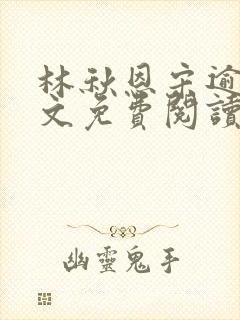 林秋恩宋逾
文免費閱讀
幽靈鬼手